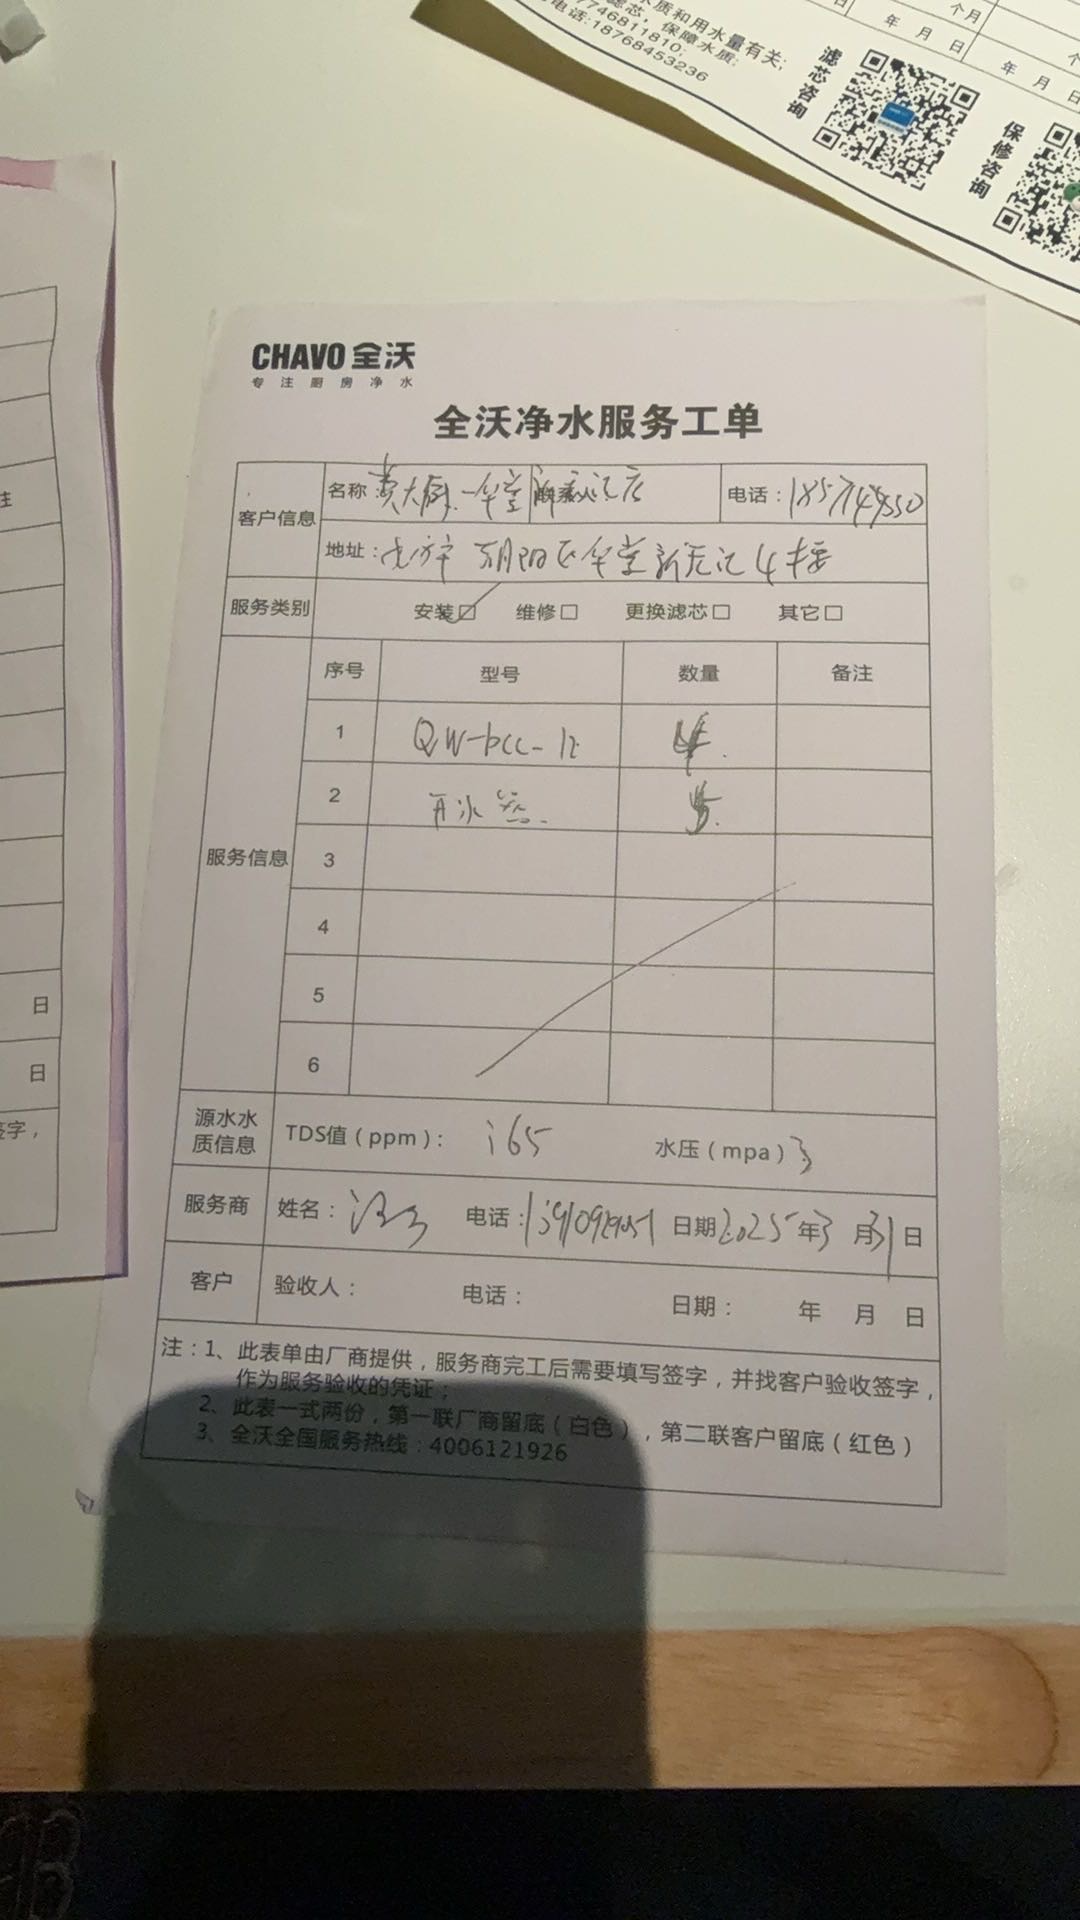 质和用水量有关;
滤芯，保障水质;
7746811810;
电话:18768453236
滤芯咨询
保修咨询
个月
年 月 日
年 月 日
日
日
签字，
CHAVO 全沃
专注厨房净水
全沃净水服务工单
客户信息
名称：黄大厨 一华堂
联系人
电话：
地址： 朝阳区华堂 4楼
服务类别 安装☑ 维修□ 更换滤芯□ 其它□
服务信息
序号 型号 数量 备注
1 QW-
2 开水器
3
4
5
6
源水水质信息 TDS值（ppm）： 165 水压（mpa）3
服务商 姓名： 电话： 日期 2025年3月31日
客户 验收人： 电话： 日期： 年 月 日
注：1、此表单由厂商提供，服务商完工后需要填写签字，并找客户验收签字，
作为服务验收的凭证；
2、此表一式两份，第一联厂商留底（白色），第二联客户留底（红色）
3、全沃全国服务热线：4006121926